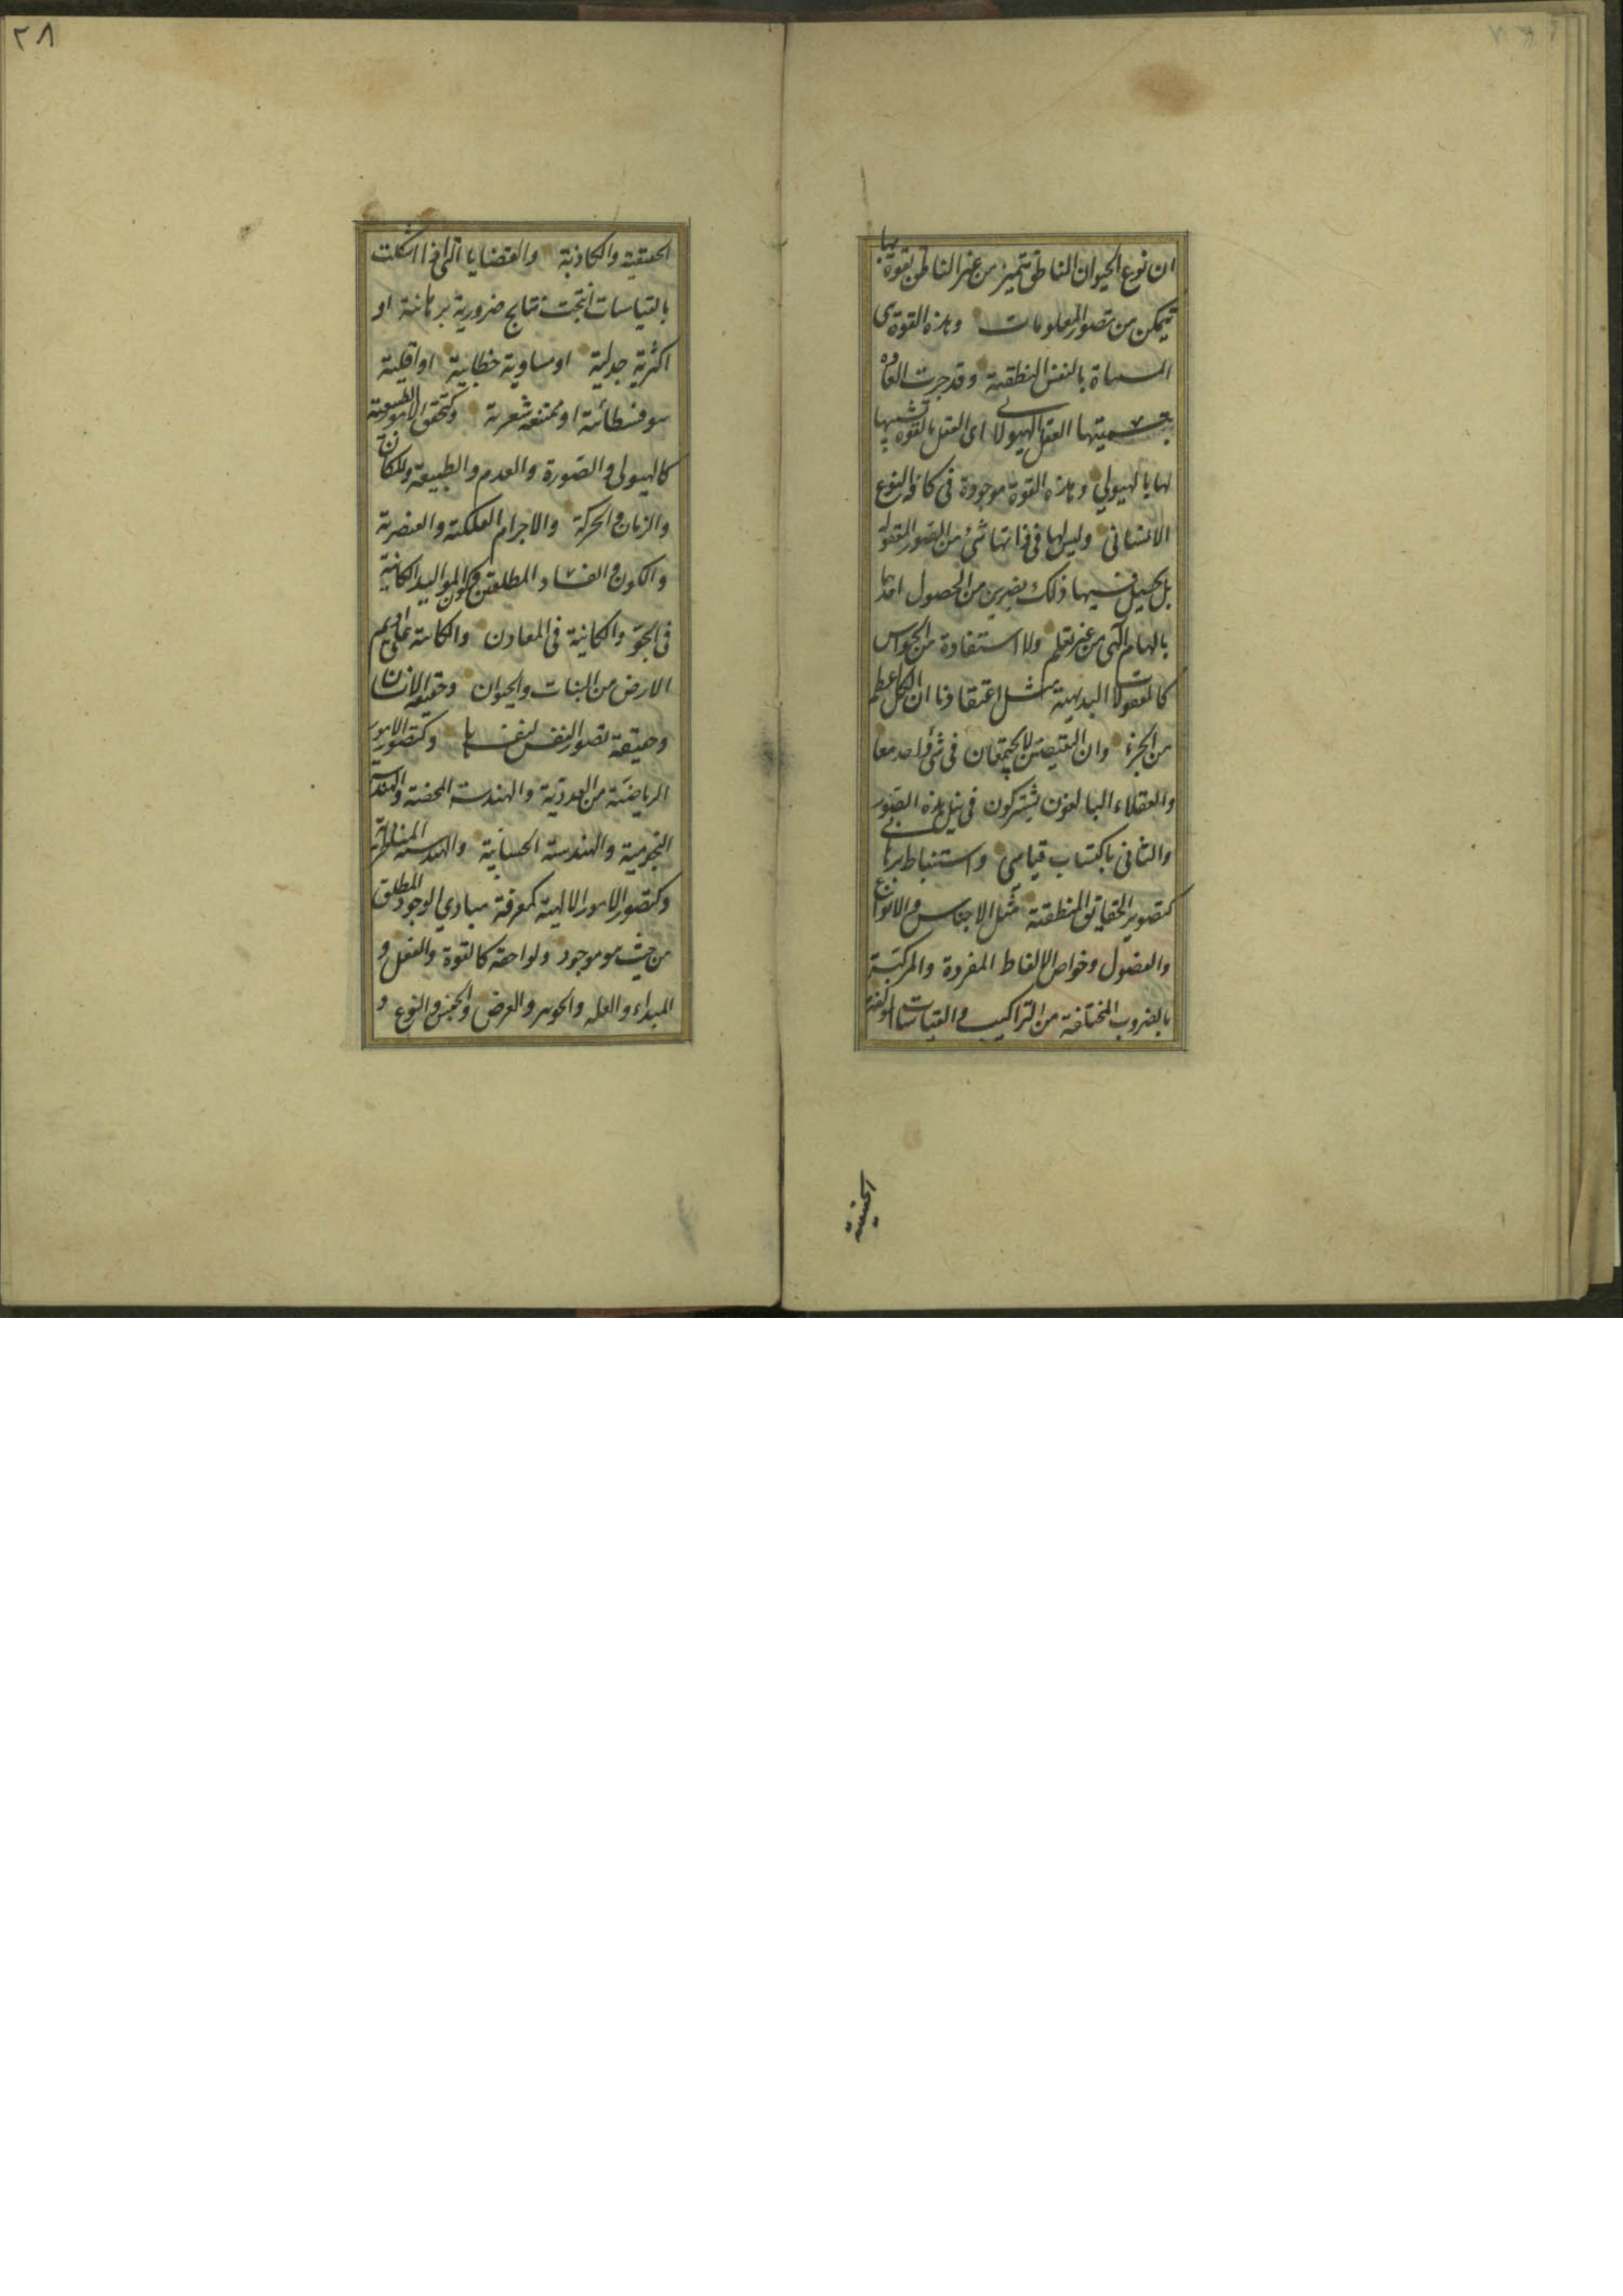 ان نوع الحيوان الناطق يتميز من غير الناطق بقوة بها
يتمكن من تصور المعلومات وهذه القوة هى
المسماة بالنفس النطقية وقد جرت العادة
بتسميتها العقل الهيولانى اى العقل بالقوة تشبيها
لها بالهيولي وهذه القوة موجودة فى كافة النوع
الانسانى وليس لها فى ذاتها شئ من الصور المعقولة
بل يحصل فيها ذلك بضربين من الحصول احدهما
بالهام الهى من غير تعلم ولا استفادة من الحواس
كالمعقولات البديهية مثل اعتقادنا ان الكل اعظم
من الجزء وان النقيضين لا يجتمعان فى شئ واحد معا
والعقلاء البالغون يشتركون فى نيل هذه الصور
والثانى باكتساب قياسي واستنباط برهانى
كتصوير الحقايق المنطقية مثل الاجناس والانواع
والفصول وخواص الالفاظ المفردة والمركبة
بالضروب المختلفة من التراكيب والقياسات المؤلفة
الحقيقية
٢٨
الحقيقية والكاذبة والقضايا التى اذا اشكلت
بالقياسات انتجت نتايج ضرورية برهانية او
اكثرية جدلية او مساوية خطابية او اقلية
سوفسطائية او ممتنعة شعرية وكتحقق الامور الطبيعية
كالهيولى والصورة والعدم والطبيعة والمكان
والزمان والحركة والاجرام الفلكية والعنصرية
والكون والفساد المطلقين وكون المواليد الكائنة
فى الجو والكائنة فى المعادن والكائنة على اديم
الارض من النبات والحيوان وحقيقة الانسان
وحقيقة تصور النفس لنفسها وكتصور الامور
الرياضية من العددية والهندسة المحضة والهندسة
النجومية والهندسة الحسابية والهندسة المناظرية
وكتصور الامور الالهية كمعرفة مبادي الوجود المطلق
من حيث هو موجود ولواحقه كالقوة والفعل و
المبداء والعلة والجوهر والعرض والجنس والنوع و